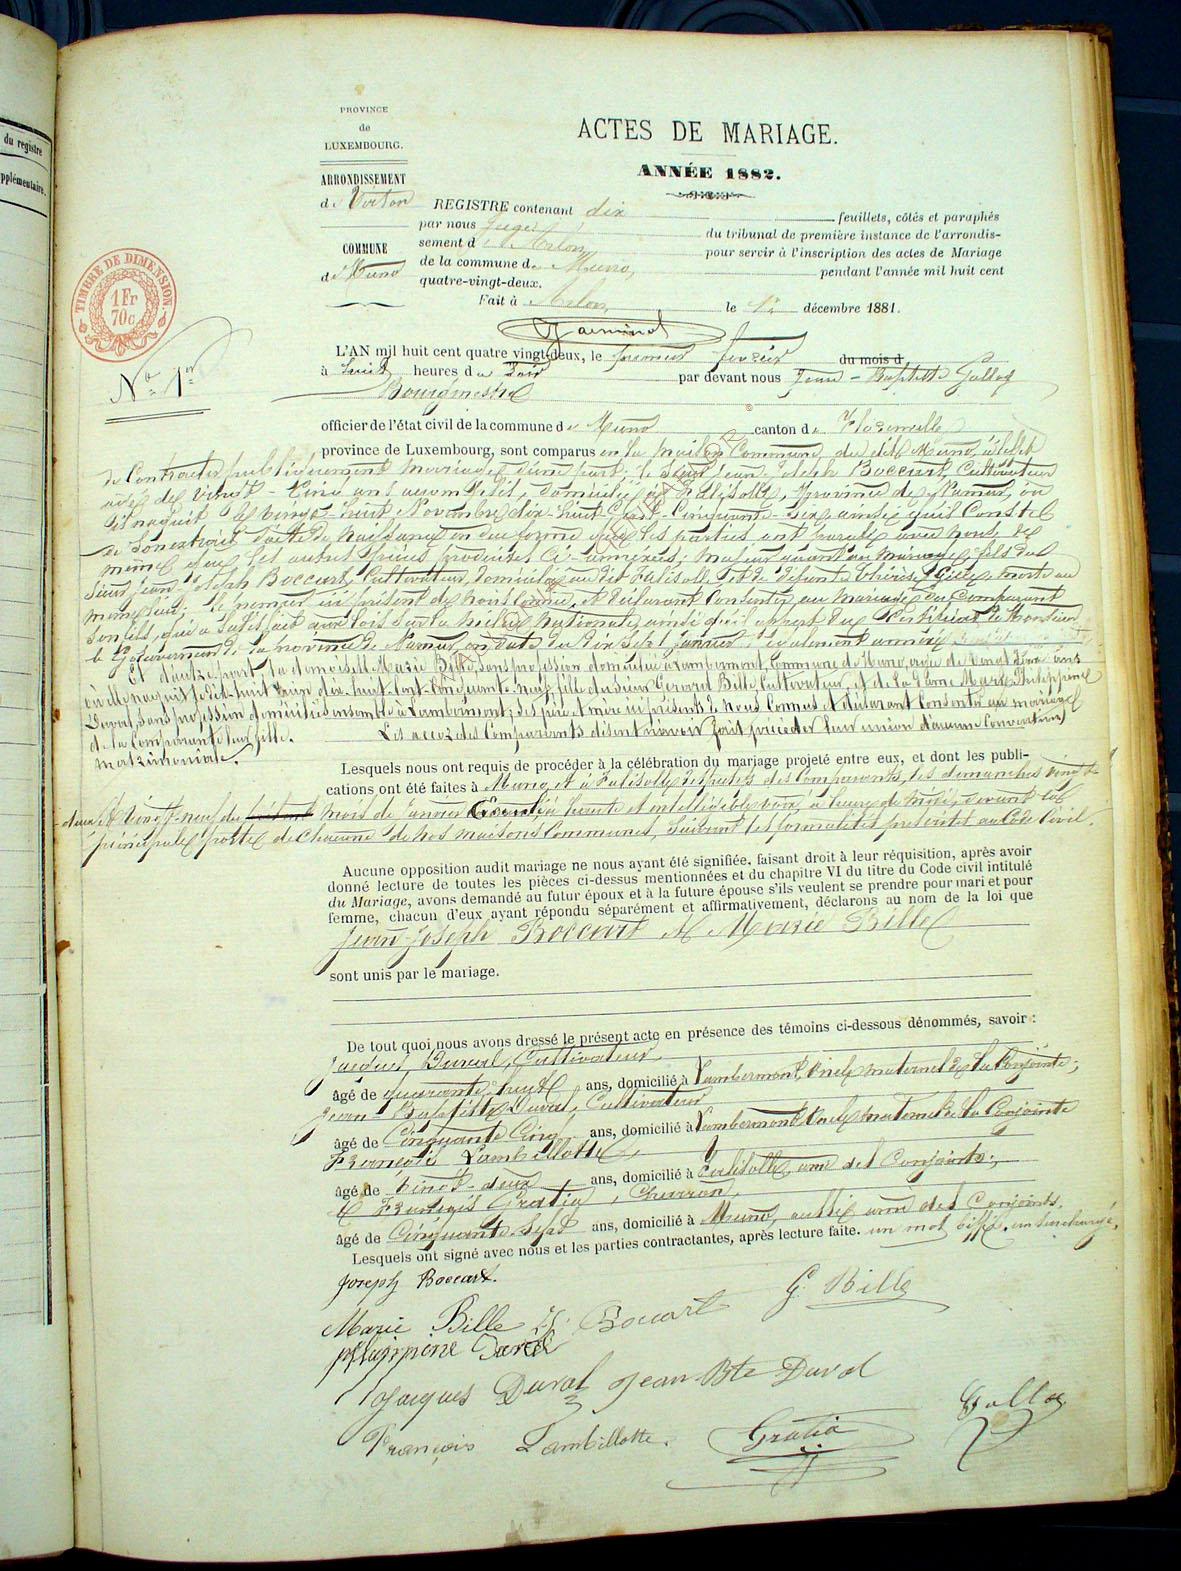 du registre
supplémentaire.
PROVINCE
de
LUXEMBOURG.
ARRONDISSEMENT
de Virton
COMMUNE
de Muno
ACTES DE MARIAGE.
ANNÉE 1882.
REGISTRE contenant dix feuillets, côtés et paraphés
par nous Juge du tribunal de première instance de l'arrondis-
sement d'Arlon, pour servir à l'inscription des actes de Mariage
de la commune de Muno, pendant l'année mil huit cent
quatre-vingt-deux.
Fait à Arlon, le 1er décembre 1881.
TIMBRE DE DIMENSION
1 Fr
70c
No 1er
L'AN mil huit cent quatre vingt-deux, le premier février du mois d
à huit heures du soir par devant nous Jean-Baptiste
Bourgmestre
officier de l'état civil de la commune de Muno canton de Florenville
province de Luxembourg, sont comparus en la maison Commune du dit Muno, à l'effet
de Contracter publiquement mariage, d'une part: le Sieur Jean Joseph Boccart, Cultivateur
âgé de vingt-cinq ans accomplis, domicilié à Falisolle, Province de Namur, où
il naquit le vingt-huit Novembre dix-huit Cent-Cinquante-six, ainsi qu'il Conste
de Son extrait d'acte de Naissance en due forme que les parties ont paraphé avec nous, de
même que les autres pièces produites Ci-annexées; majeur quant au mariage, fils du
Sieur Jean Joseph Boccart, Cultivateur, domicilié au dit Falisolle et de défunte Thérèse morte au
même lieu; le premier ici présent de nous Connu, et déclarant Consentir au mariage du Comparant
son fils, qui a satisfait aux lois sur la milice Nationale, ainsi qu'il appert du Certificat de Monsieur
le Gouverneur de la province de Namur, en date du dix sept janvier, également annexé
Et d'autre part, la demoiselle Marie Bille, Sans profession, domiciliée à Lambermont, Commune de Muno, âgée de vingt deux ans
où elle naquit le dix-huit dix-huit-Cent-Cinquante-neuf, fille du Sieur Gérard Bille, Cultivateur, et de la Dame Marie Philippine
Duval, sans profession domiciliés ensemble à Lambermont; Ses père et mère ici présents de Nous Connus et déclarant Consentir au mariage
de la Comparante leur fille. Les Comparants disent n'avoir fait précéder leur union d'aucune Convention
matrimoniale.
Lesquels nous ont requis de procéder à la célébration du mariage projeté entre eux, et dont les publi-
cations ont été faites à Muno, et à Falisolle, respectifs des Comparants, les dimanches vingt-
deux et vingt-neuf du mois de Janvier à haute et intelligible voix, à heure de midi, devant la
principale porte de Chacune de nos maisons Communes, Suivant les formalités prescrites au Code Civil.
Aucune opposition audit mariage ne nous ayant été signifiée, faisant droit à leur réquisition, après avoir
donné lecture de toutes les pièces ci-dessus mentionnées et du chapitre VI du titre du Code civil intitulé
du Mariage, avons demandé au futur époux et à la future épouse s'ils veulent se prendre pour mari et pour
femme, chacun d'eux ayant répondu séparément et affirmativement, déclarons au nom de la loi que
Jean Joseph Boccart et Marie Bille
sont unis par le mariage.
De tout quoi nous avons dressé le présent acte en présence des témoins ci-dessous dénommés, savoir :
Jacques Duval, Cultivateur
âgé de quarante-huit ans, domicilié à Lambermont, Oncle maternel de la Conjointe;
Jean-Baptiste Duval, Cultivateur
âgé de Cinquante Cinq ans, domicilié à Lambermont, Oncle maternel de la Conjointe
François Lambillotte,
âgé de vingt-deux ans, domicilié à Falisolle, ami des Conjoints;
& François Gratia,
âgé de Cinquante-Sept ans, domicilié à Muno, aussi ami des Conjoints.
Lesquels ont signé avec nous et les parties contractantes, après lecture faite. un mot biffé, un surchargé.
Joseph Boccart.
Marie Bille J. Boccart G. Bille
philippine Duval
Jacques Duval Jean Bte Duval
François Lambillotte. Gratia